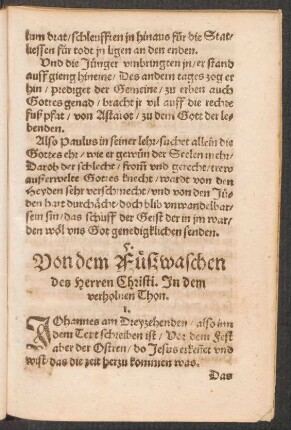 kam drat/schleufften jn hinaus für die Stat/
liessen für todt jn ligen an den enden.
Vnd die Jünger vmbringten jn/er stand
auff gieng hineine/Des andern tages zog er
hin/prediget der Gemeine/zu erben auch
Gottes genad/bracht jr vil auff die rechte
fuß pfat/von Astarot/zu dem Gott der le-
benden.
Also Paulus in seiner lehr/suchet allein die
Gottes ehr/wie er gewün der Seelen mehr/
Darob der schlecht/fromm vnd gerecht/trew
außerwelte Gottes knecht/wardt von den
Heyden sehr verschmecht/vnd von den Jü-
den hart durchächt/doch blib vnwandelbar/
sein sin/das schuff der Geist der in jm war/
den wöl vns Got genedigklichen senden.
Von dem Füßwaschen
des Herren Christi. In dem
verholnen Thon.
1.
JOhannes am Dreyzehenden/also im
dem Text schreiben ist/Vor dem Fest
aber der Ostren/do Jesus erkeñet vnd
wist/das die zeit herzu kommen was.
Das